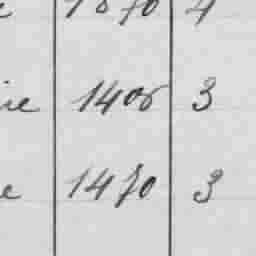 1870 4
ire 1408 3
e 1470 3